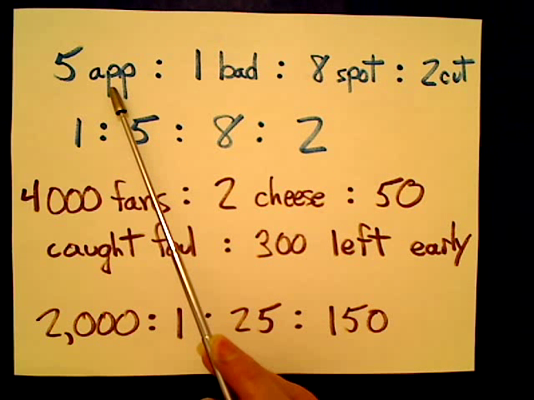 5 app : 1 bad : 8 spot : 2 cut
1 : 5 : 8 : 2
4000 fans : 2 cheese : 50
caught foul : 300 left early
2,000 : 1 : 25 : 150